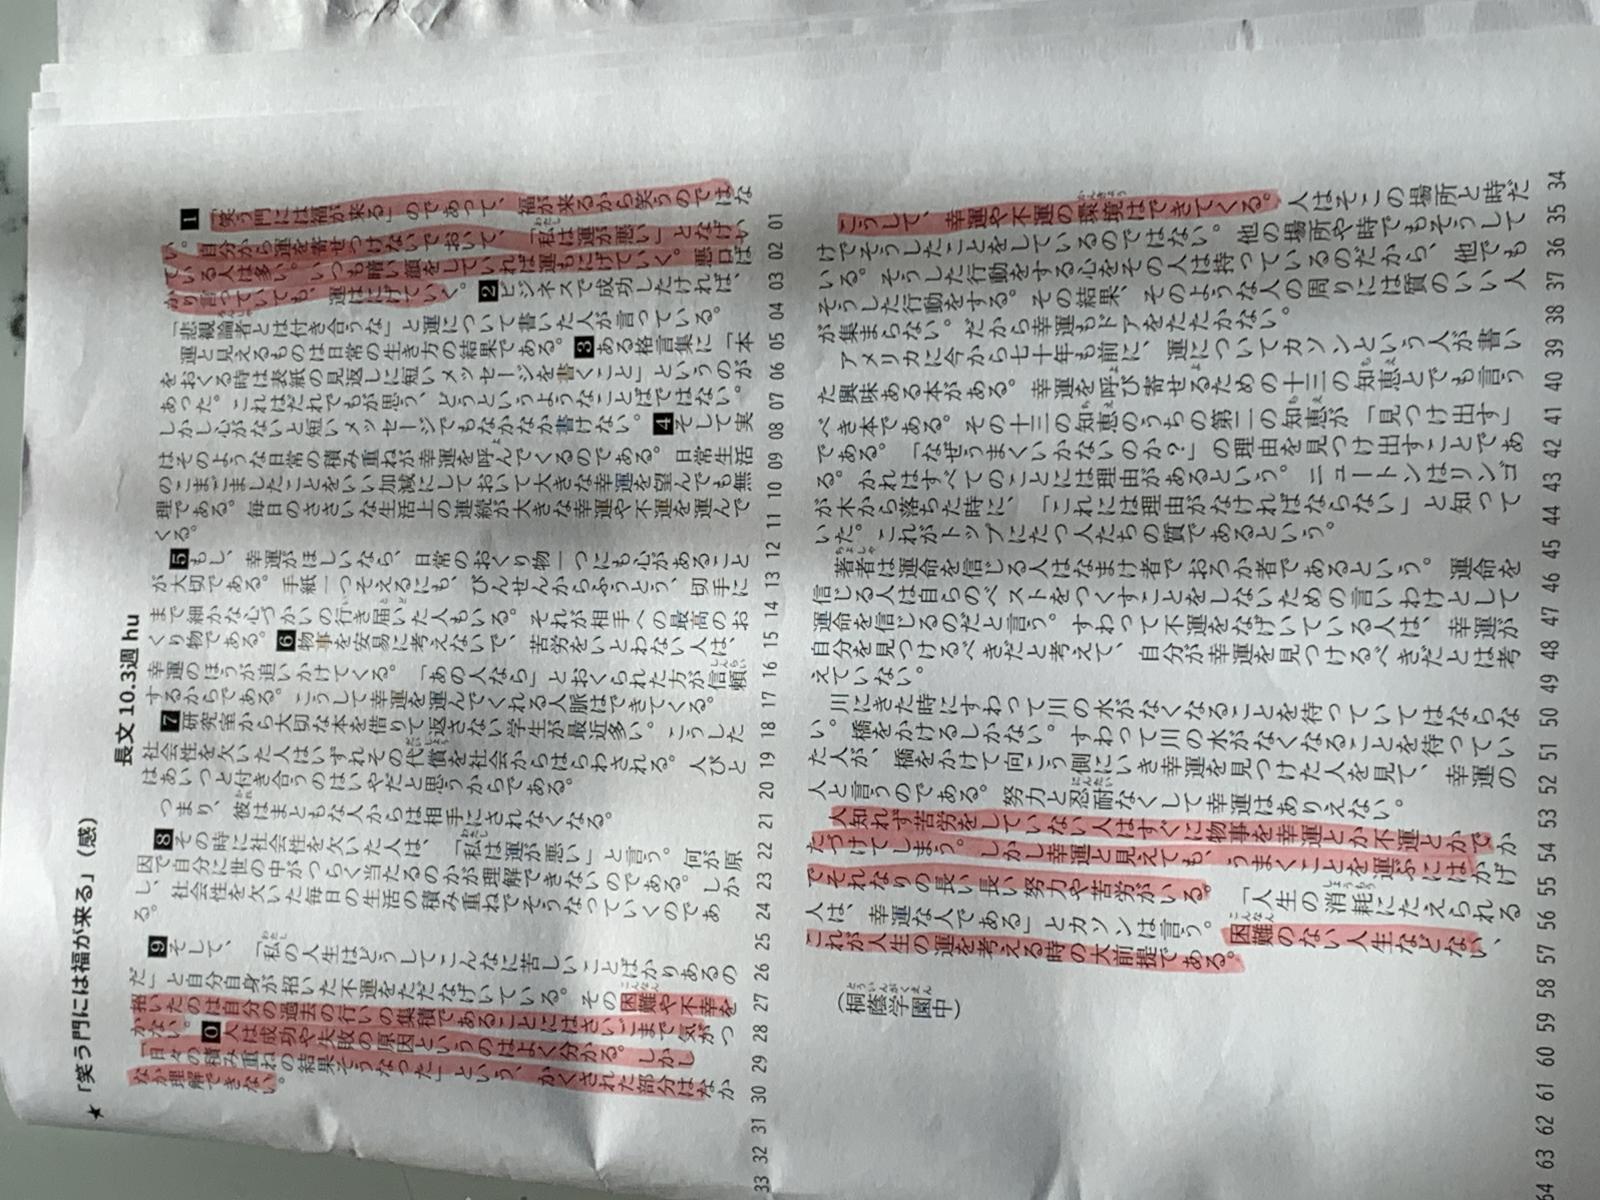 ★「笑う門には福が来る」(感)
長文 10.3週 hu
1「笑う門には福が来る」のであって、福が来るから笑うのではな
い。自分から運を寄せつけないでおいて、「私は運が悪い」となげい
ている人は多い。いつも暗い顔をしていれば運もにげていく。悪口ば
かり言っていても、運はにげていく。2ビジネスで成功したければ、
「悲観論者とは付き合うな」と運について書いた人が言っている。
運と見えるものは日常の生き方の結果である。3ある格言集に「本
をおくる時は表紙の見返しに短いメッセージを書くこと」というのが
あった。これはだれでもが思う、どうというようなことばではない。
しかし心がないと短いメッセージでもなかなか書けない。4そして実
はそのような日常の積み重ねが幸運を呼んでくるのである。日常生活
のこまごましたことをいい加減にしておいて大きな幸運を望んでも無
理である。毎日のささいな生活上の連続が大きな幸運や不運を運んで
くる。
5もし、幸運がほしいなら、日常のおくり物一つにも心があること
が大切である。手紙一つそえるにも、びんせんからふうとう、切手に
まで細かな心づかいの行き届いた人もいる。それが相手への最高のお
くり物である。6物事を安易に考えないで、苦労をいとわない人は、
幸運のほうが追いかけてくる。「あの人なら」とおくられた方が信頼
するからである。こうして幸運を運んでくれる人脈はできてくる。
7研究室から大切な本を借りて返さない学生が最近多い。こうした
社会性を欠いた人はいずれその代償を社会からはらわされる。人びと
はあいつと付き合うのはいやだと思うからである。
つまり、彼はまともな人からは相手にされなくなる。
8その時に社会性を欠いた人は、「私は運が悪い」と言う。何が原
因で自分に世の中がつらく当たるのかが理解できないのである。しか
し、社会性を欠いた毎日の生活の積み重ねでそうなっていくのであ
る。
9そして、「私の人生はどうしてこんなに苦しいことばかりあるの
だ」と自分自身が招いた不運をただなげいている。その困難や不幸を
招いたのは自分の過去の行いの集積であることにはさいごまで気がつ
かない。0人は成功や失敗の原因というのはよく分かる。しかし
「日々の積み重ねの結果そうなった」という、かくされた部分はなか
なか理解できない。
01 02 03 04 05 06 07 08 09 10 11 12 13 14 15 16 17 18 19 20 21 22 23 24 25 26 27 28 29 30 31 32 33
こうして、幸運や不運の環境はできてくる。人はそこの場所と時だ
けでそうしたことをしているのではない。他の場所や時でもそうして
いる。そうした行動をする心をその人は持っているのだから、他でも
そうした行動をする。その結果、そのような人の周りには質のいい人
が集まらない。だから幸運もドアをたたかない。
アメリカに今から七十年も前に、運についてカソンという人が書い
た興味ある本がある。幸運を呼び寄せるための十三の知恵とでも言う
べき本である。その十三の知恵のうちの第一の知恵が「見つけ出す」
である。「なぜうまくいかないのか?」の理由を見つけ出すことであ
る。かれはすべてのことには理由があるという。ニュートンはリンゴ
が木から落ちた時に、「これには理由がなければならない」と知って
いた。これがトップにたつ人たちの質であるという。
著者は運命を信じる人はなまけ者でおろか者であるという。運命を
信じる人は自らのベストをつくすことをしないための言いわけとして
運命を信じるのだと言う。すわって不運をなげいている人は、幸運が
自分を見つけるべきだと考えて、自分が幸運を見つけるべきだとは考
えていない。
川にきた時にすわって川の水がなくなることを待っていてはならな
い。橋をかけるしかない。すわって川の水がなくなることを待ってい
た人が、橋をかけて向こう側にいき幸運を見つけた人を見て、幸運の
人と言うのである。努力と忍耐なくして幸運はありえない。
人知れず苦労をしていない人はすぐに物事を幸運とか不運とかでか
たづけてしまう。しかし幸運と見えても、うまくことを運ぶにはかげ
でそれなりの長い長い努力や苦労がいる。「人生の消耗にたえられる
人は、幸運な人である」とカソンは言う。困難のない人生などない、
これが人生の運を考える時の大前提である。
(桐蔭学園中)
34 35 36 37 38 39 40 41 42 43 44 45 46 47 48 49 50 51 52 53 54 55 56 57 58 59 60 61 62 63 64